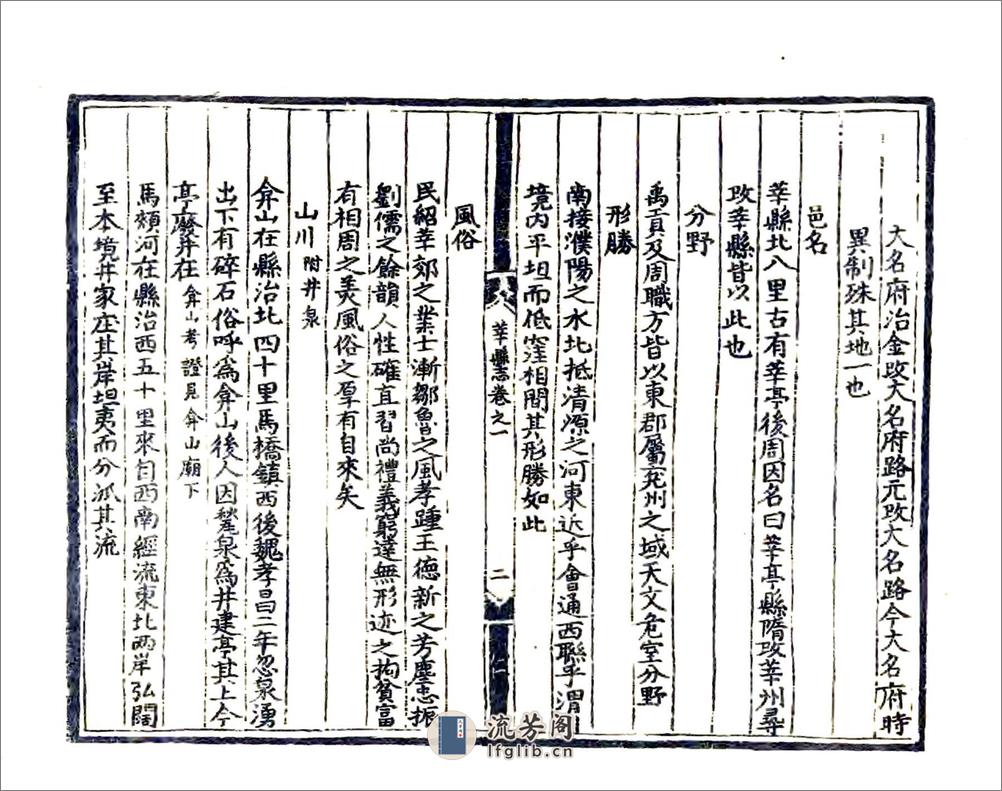 大名府治金攺大名府路元攺大名路今大名府時
異制殊其地一也
邑名
莘縣北八里古有莘亭後周因名曰莘亭縣隋攺莘州尋
攺莘縣皆以此也
分野
禹貢及周職方皆以東郡屬兖州之域天文危室分野
形勝
南接濮陽之水北抵清源之河東近乎會通西聯乎渭
境内平坦而低窪相間其形勝如此
莘縣志卷之一
二
風俗
民紹莘郊之業士漸鄒魯之風孝踵王德新之芳塵忠振
劉儒之餘韻人性確直習尚禮義窮達無形迹之拘貧富
有相周之美風俗之厚有自來矣
山川 附井泉
弇山在縣治北四十里馬橋鎮西後魏孝昌二年忽泉湧
出下有碎石俗呼為弇山後人因甃泉為井建亭其上今
亭廢井在 弇山考證見弇山廟下
馬頰河在縣治西五十里來自西南經流東北两岸弘闊
至本境井家庄其岸坦夷而分派其流
流芳阁
lfglib.cn